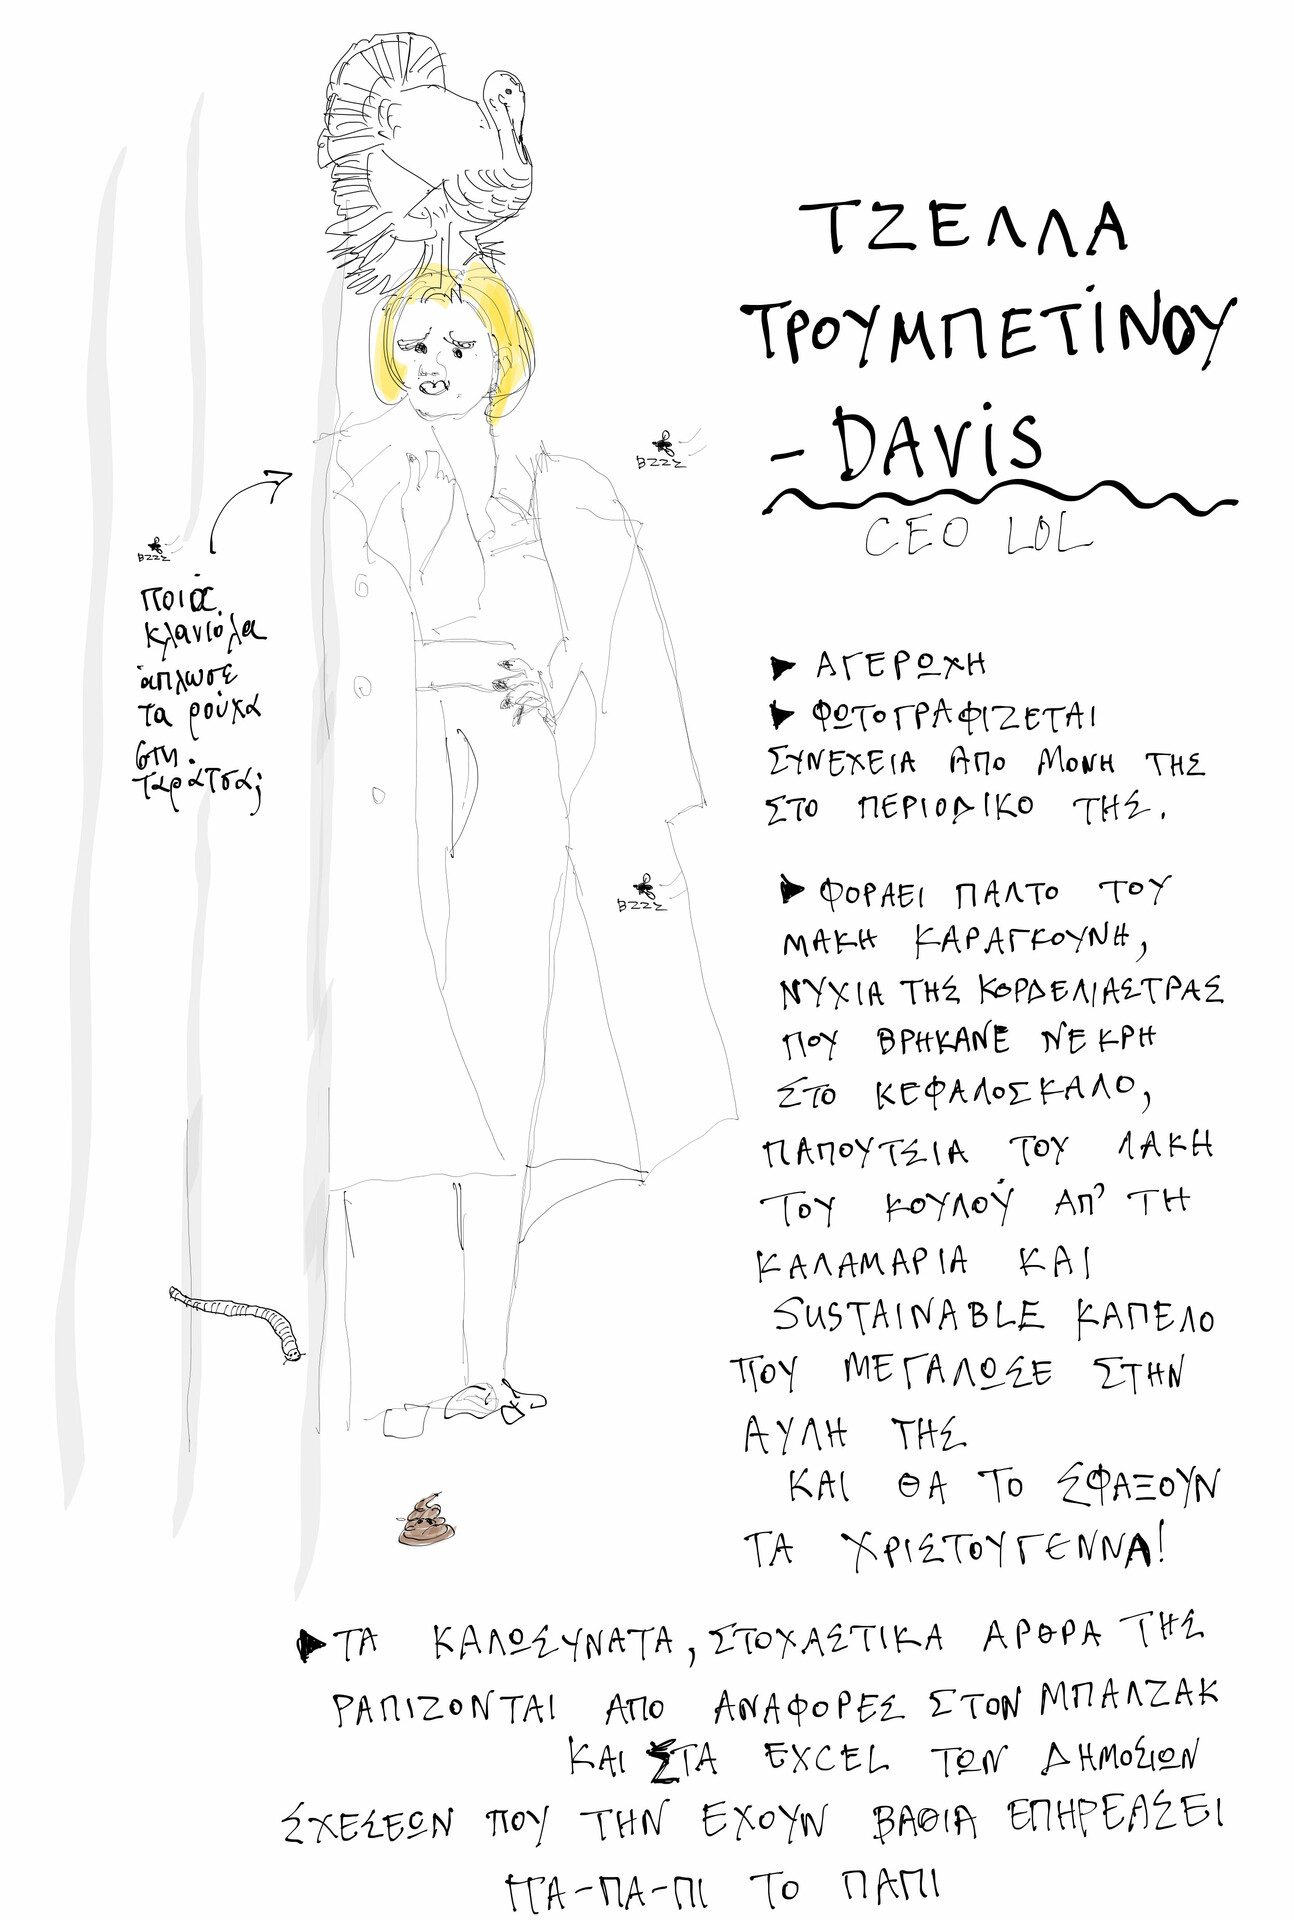 ΤΖΕΛΛΑ
ΤΡΟΥΜΠΕΤΙΝΟΥ
- DAVIS
CEO LOL
BZZZ
BZZZ
ποιά
κλανιόλα
άπλωσε
τα ρούχα
στη
ταράτσα;
▶ ΑΓΕΡΩΧΗ
▶ ΦΩΤΟΓΡΑΦΙΖΕΤΑΙ
ΣΥΝΕΧΕΙΑ ΑΠΟ ΜΟΝΗ ΤΗΣ
ΣΤΟ ΠΕΡΙΟΔΙΚΟ ΤΗΣ.
BZZZ
▶ ΦΟΡΑΕΙ ΠΑΛΤΟ ΤΟΥ
ΜΑΚΗ ΚΑΡΑΓΚΟΥΝΗ,
ΝΥΧΙΑ ΤΗΣ ΚΟΡΔΕΛΙΑΣΤΡΑΣ
ΠΟΥ ΒΡΗΚΑΝΕ ΝΕΚΡΗ
ΣΤΟ ΚΕΦΑΛΟΣΚΑΛΟ,
ΠΑΠΟΥΤΣΙΑ ΤΟΥ ΛΑΚΗ
ΤΟΥ ΚΟΥΛΟΎ ΑΠ' ΤΗ
ΚΑΛΑΜΑΡΙΑ ΚΑΙ
SUSTAINABLE ΚΑΠΕΛΟ
ΠΟΥ ΜΕΓΑΛΩΣΕ ΣΤΗΝ
ΑΥΛΗ ΤΗΣ
ΚΑΙ ΘΑ ΤΟ ΣΦΑΞΟΥΝ
ΤΑ ΧΡΙΣΤΟΥΓΕΝΝΑ!
▶ ΤΑ ΚΑΛΩΣΥΝΑΤΑ, ΣΤΟΧΑΣΤΙΚΑ ΑΡΘΡΑ ΤΗΣ
ΡΑΠΙΖΟΝΤΑΙ ΑΠΟ ΑΝΑΦΟΡΕΣ ΣΤΟΝ ΜΠΑΛΖΑΚ
ΚΑΙ ΣΤΑ EXCEL ΤΩΝ ΔΗΜΟΣΙΩΝ
ΣΧΕΣΕΩΝ ΠΟΥ ΤΗΝ ΕΧΟΥΝ ΒΑΘΙΑ ΕΠΗΡΕΑΣΕΙ
ΠΑ-ΠΑ-ΠΙ ΤΟ ΠΑΠΙ